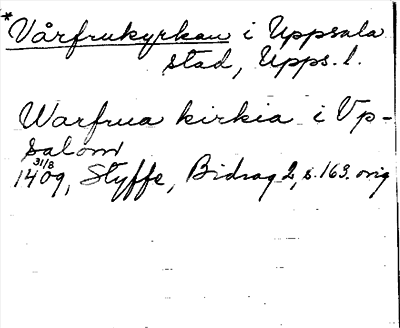 *Vårfrukyrkan i Uppsala
stad, Upps. l.
Warfrua kirkia i Vp-
salom
31/8
1409, Styffe, Bidrag 2, s. 163. orig